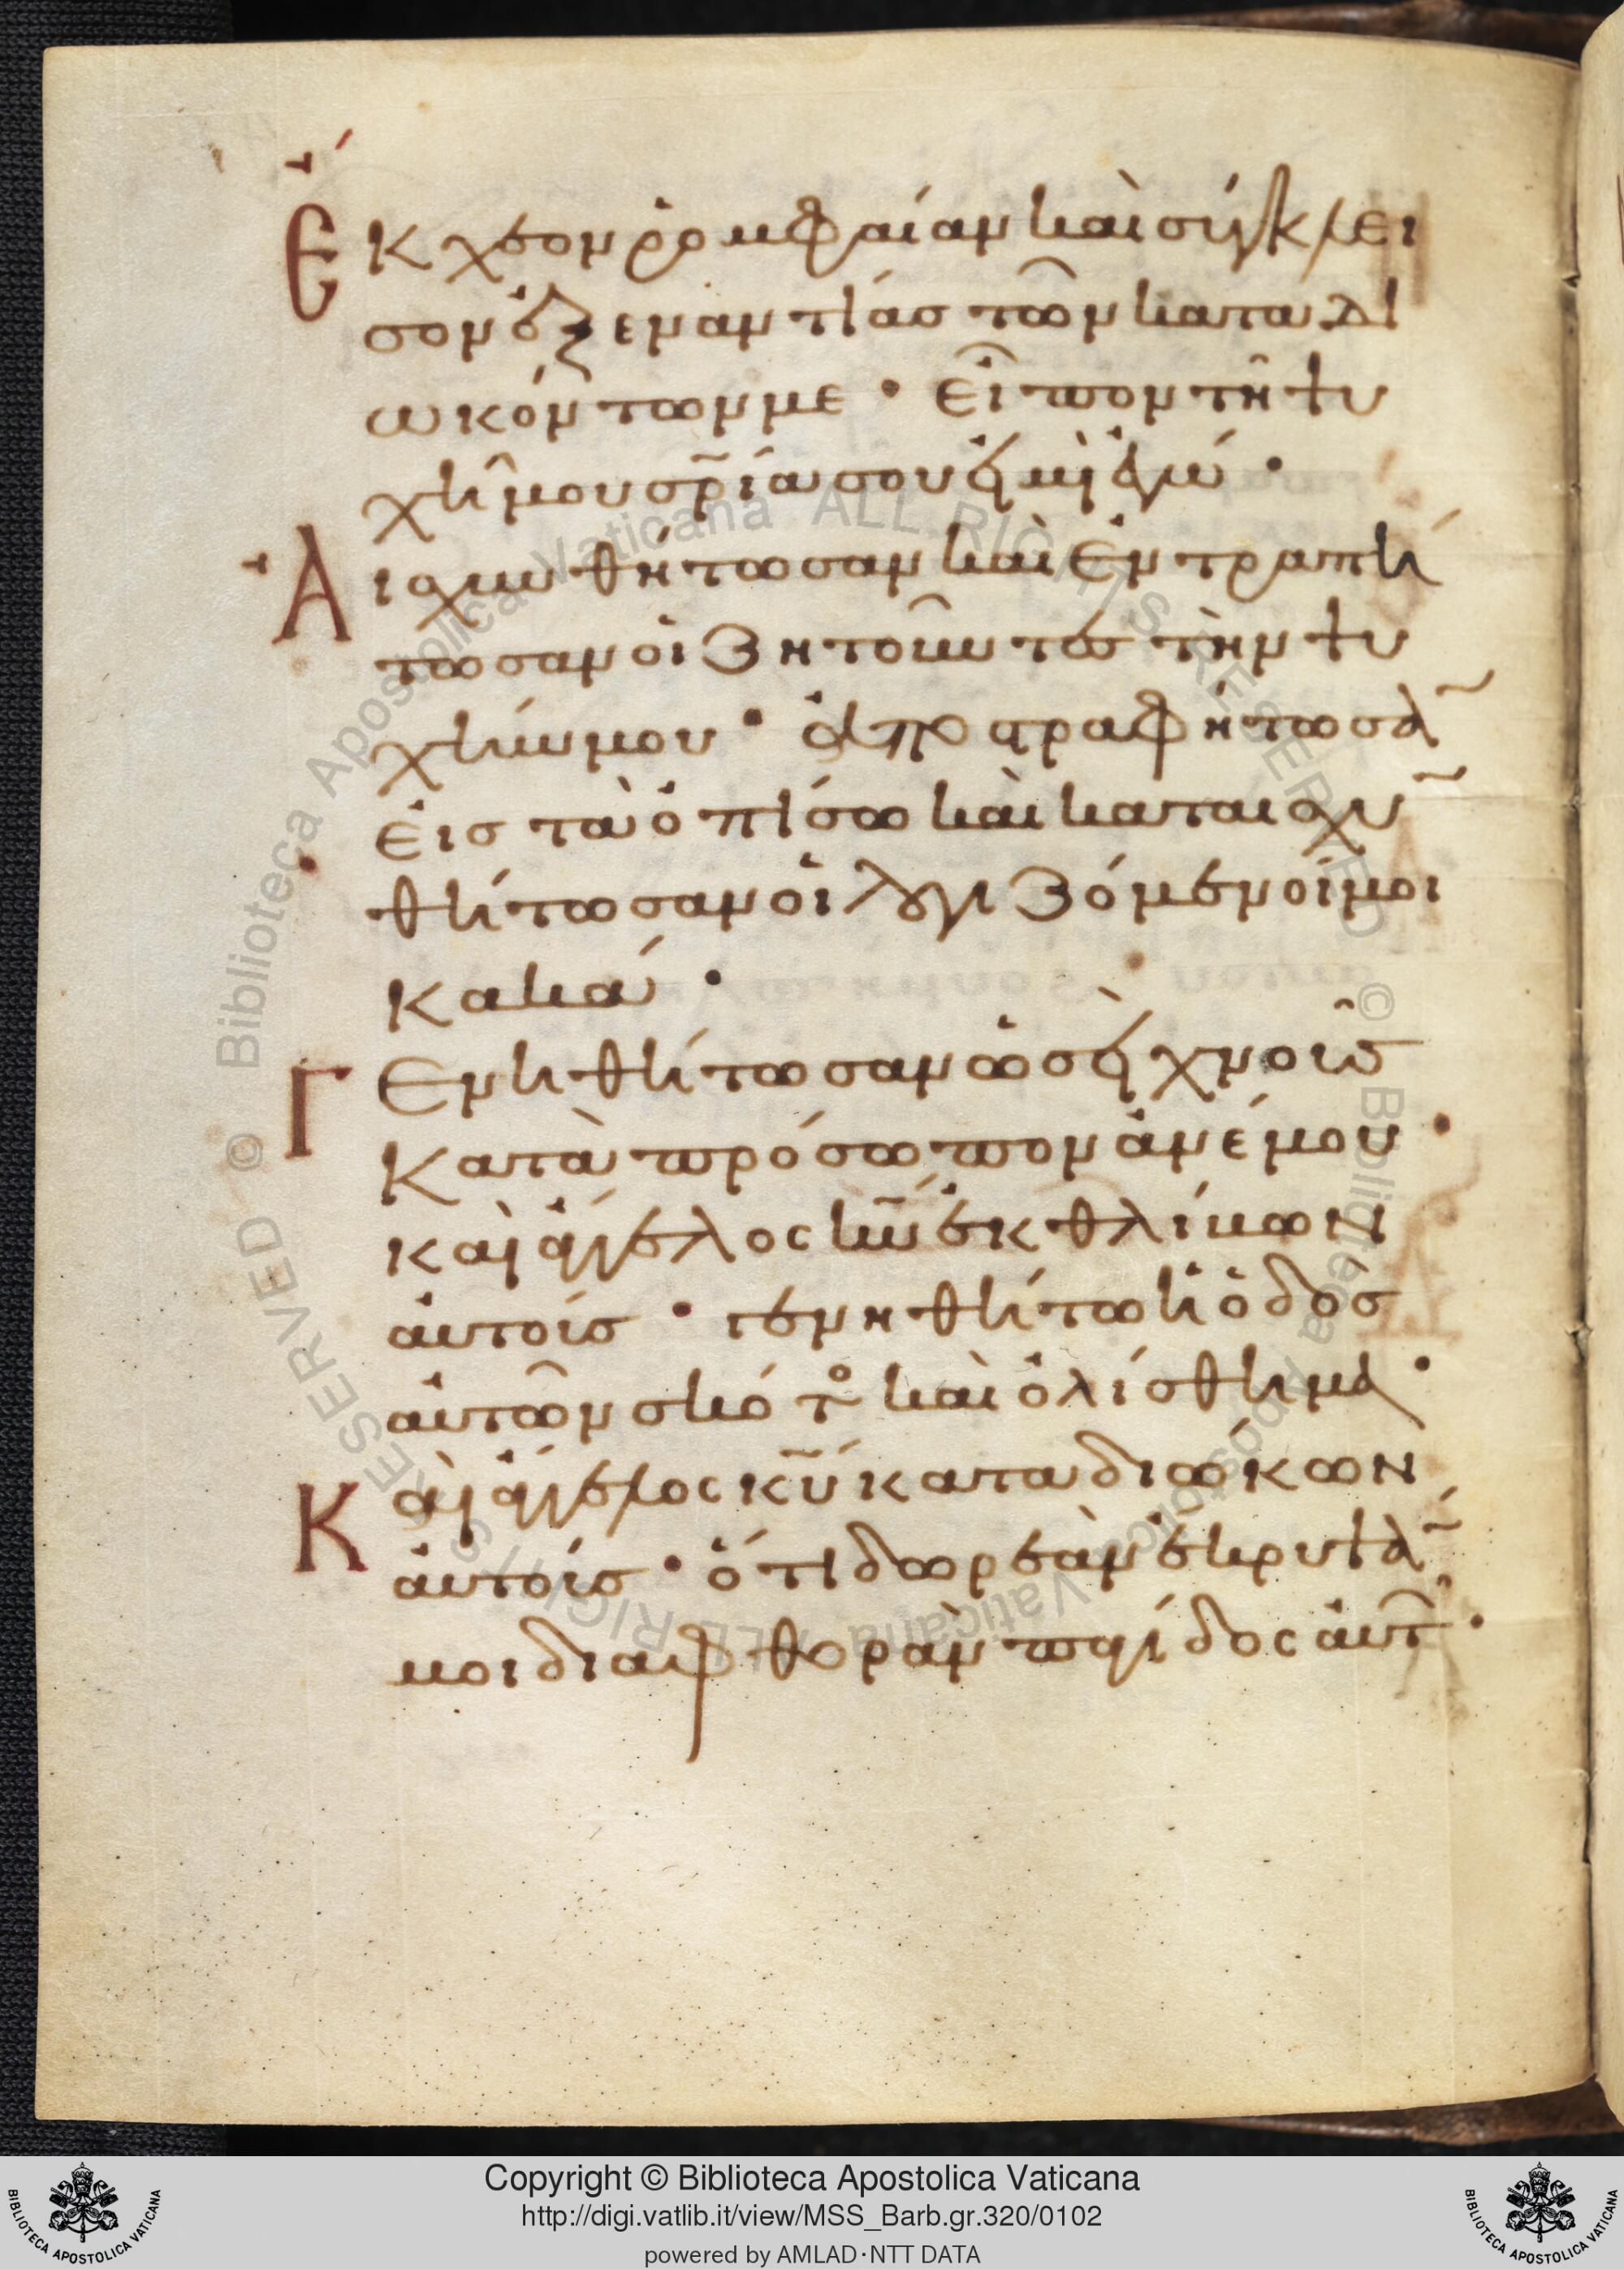 Ἔκχεον ρομφαίαν καὶ σύγκλει
σον ἐξεναντίας τῶν καταδι
ωκόντων με· εἶπον τῆ ψυ
χῆ μου σρ̅ία σου ἐγώ·
Αἰσχυνθήτωσαν καὶ ἐντραπή
τωσαν οἱ ζητοῦντες τὴν ψυ
χήν μου· ἀποστραφήτωσα̅
εἰς τὰ ὀπίσω καὶ καταισχυ̅
θήτωσαν οἱ λογιζόμενοί μοι
κακά·
Γενηθήτωσαν ὡσεὶ χνοῦς
κατὰ πρόσωπον ἀνέμου·
καὶ ἄγγελος κ̅υ̅ ἐκθλίβων
αὐτούς· γενηθήτω ἡ ὁδὸς
αὐτῶν σκότος καὶ ὀλίσθημα·
Καὶ ἄγγελος κ̅υ̅ καταδιώκων
αὐτούς· ὅτι δωρεὰν ἔκρυψα̅
μοι διαφθορὰν παγίδος αὐτ·
Copyright © Biblioteca Apostolica Vaticana
http://digi.vatlib.it/view/MSS_Barb.gr.320/0102
powered by AMLAD·NTT DATA
BIBLIOTECA APOSTOLICA VATICANA
BIBLIOTECA APOSTOLICA VATICANA
© Biblioteca Apostolica Vaticana ALL RIGHTS RESERVED © Biblioteca Apostolica Vaticana ALL RIGHTS RESERVED